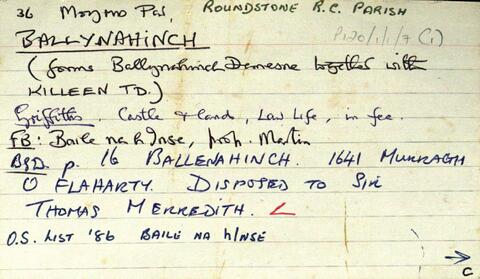 36 Moyrus Ps, ROUNDSTONE R.C. PARISH
P120/1/1/7 (1)
BALLYNAHINCH
(forms Ballynahinch Demesne together with
KILLEEN TD.)
Griffiths. Castle & land, Law Life, in fee.
FB: Baile na h Inse, prop. Martin
BSD. p. 16 BALLENAHINCH. 1641 MURRAGH
O FLAHARTY. DISPOSED TO SIR
THOMAS MERREDITH.
O.S. LIST '86 BAILE NA h/NSE
→
C